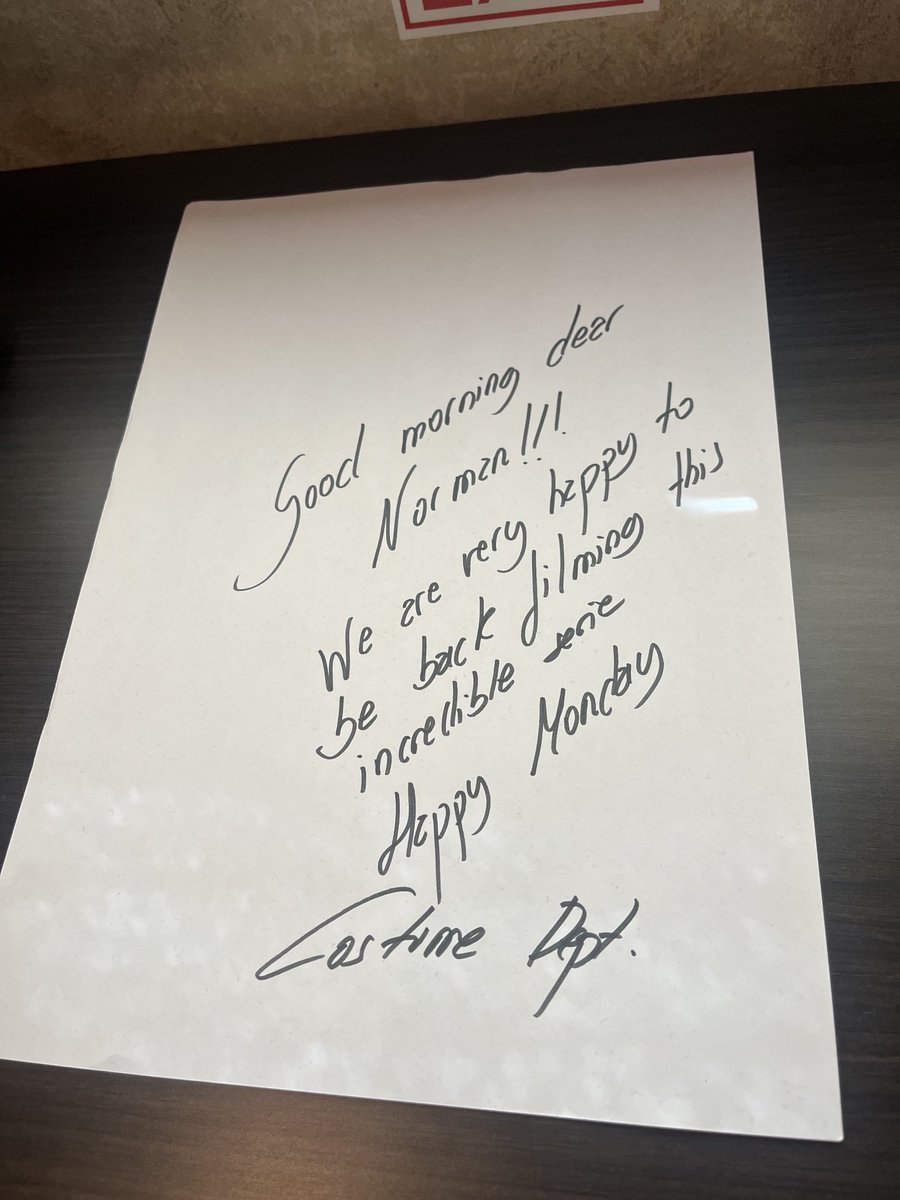 Good morning dear
Norman!!!
We are very happy to
be back filming this
incredible serie
Happy Monday
Costume Dept.